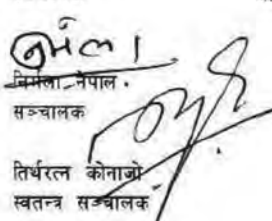 निर्मला
निर्मला नेपाल
सञ्चालक
तिर्थरत्न कोनाजो
स्वतन्त्र सञ्चालक